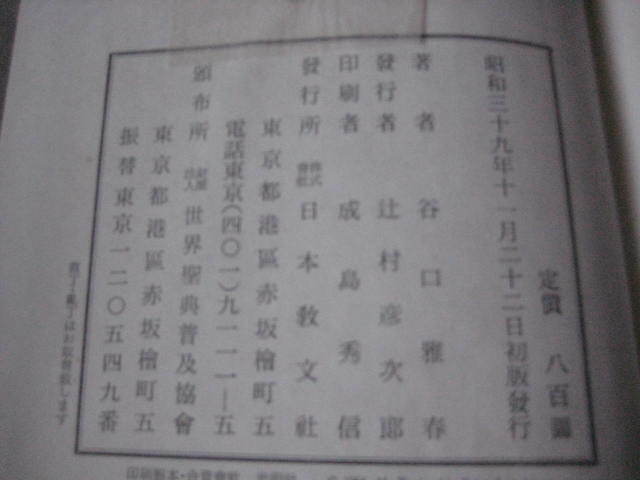 定價 八百圓
昭和三十九年十一月二十二日初版發行
著者 谷口雅春
發行者 辻村彦次郎
印刷者 成島秀信
發行所 株式會社 日本教文社
東京都港區赤坂檜町五
電話東京(四〇一)九一一一—五
頒布所 財團法人 世界聖典普及協會
東京都港區赤坂檜町五
振替東京一二〇五四九番
落丁・亂丁はお取替致します